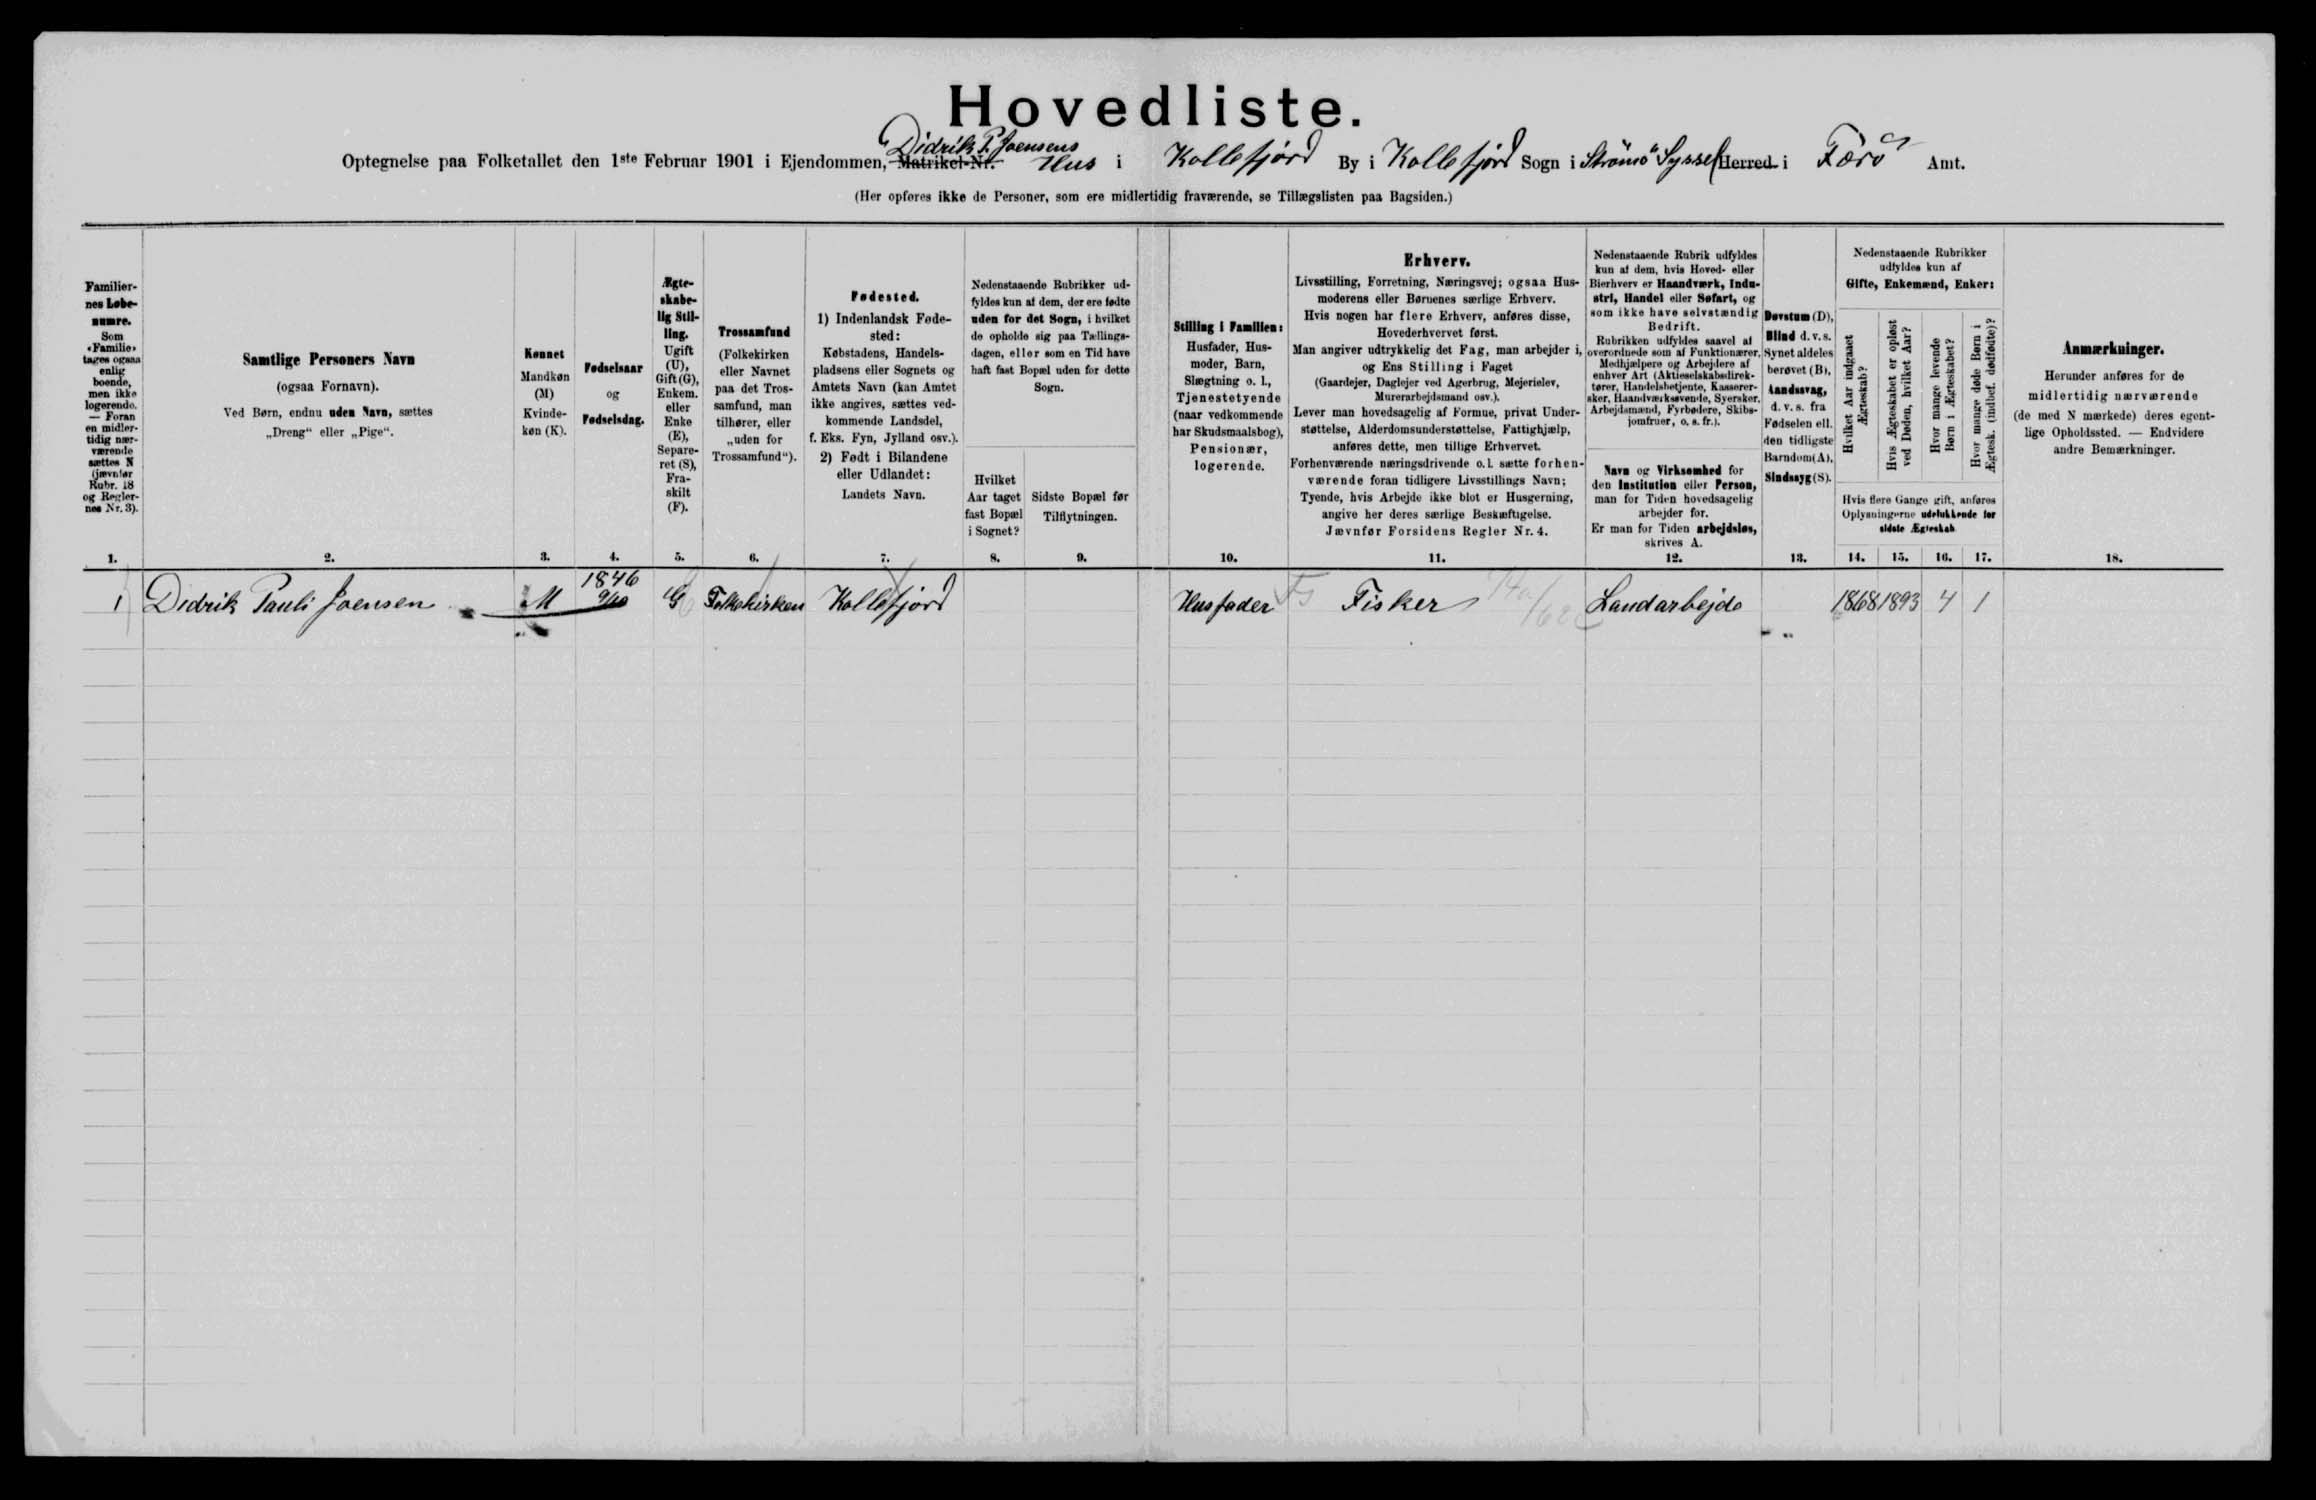 Hovedliste.
Didrik P. Joensens
Optegnelse paa Folketallet den 1ste Februar 1901 i Ejendommen, Matrikel-Nr. Hus i Kollefjord By i Kollefjord Sogn i Strömö Syssel Herred i Færö Amt.
(Her opføres ikke de Personer, som ere midlertidig fraværende, se Tillægslisten paa Bagsiden.)
Familier-
nes Løbe-
numre.
Som
«Familie»
tages ogsaa
enlig
boende,
men ikke
logerende.
— Foran
en midler-
tidig nær-
værende
sættes N
(jævnfør
Rubr. 18
og Regler-
nes Nr. 3).
Samtlige Personers Navn
(ogsaa Fornavn).
Ved Børn, endnu uden Navn, sættes
„Dreng“ eller „Pige“.
Kønnet
Mandkøn
(M)
Kvinde-
køn (K).
Fødselsaar
og
Fødselsdag.
Ægte-
skabe-
lig Stil-
ling.
Ugift
(U),
Gift (G),
Enkem.
eller
Enke
(E),
Separe-
ret (S),
Fra-
skilt
(F).
Trossamfund
(Folkekirken
eller Navnet
paa det Tros-
samfund, man
tilhører, eller
„uden for
Trossamfund“).
Fødested.
1) Indenlandsk Føde-
sted:
Købstadens, Handels-
pladsens eller Sognets og
Amtets Navn (kan Amtet
ikke angives, sættes ved-
kommende Landsdel,
f. Eks. Fyn, Jylland osv.).
2) Født i Bilandene
eller Udlandet:
Landets Navn.
Nedenstaaende Rubrikker ud-
fyldes kun af dem, der ere fødte
uden for det Sogn, i hvilket
de opholde sig paa Tællings-
dagen, eller som en Tid have
haft fast Bopæl uden for dette
Sogn.
Hvilket
Aar taget
fast Bopæl
i Sognet?
Sidste Bopæl før
Tilflytningen.
Stilling i Familien:
Husfader, Hus-
moder, Barn,
Slægtning o. l.,
Tjenestetyende
(naar vedkommende
har Skudsmaalsbog),
Pensionær,
logerende.
Erhverv.
Livsstilling, Forretning, Næringsvej; ogsaa Hus-
moderens eller Børnenes særlige Erhverv.
Hvis nogen har flere Erhverv, anføres disse,
Hovederhvervet først.
Man angiver udtrykkelig det Fag, man arbejder i,
og Ens Stilling i Faget
(Gaardejer, Daglejer ved Agerbrug, Mejerielev,
Murerarbejdsmand osv.).
Lever man hovedsagelig af Formue, privat Under-
støttelse, Alderdomsunderstøttelse, Fattighjælp,
anføres dette, men tillige Erhvervet.
Forhenværende næringsdrivende o. l. sætte forhen-
værende foran tidligere Livsstillings Navn;
Tyende, hvis Arbejde ikke blot er Husgerning,
angive her deres særlige Beskæftigelse.
Jævnfør Forsidens Regler Nr. 4.
Nedenstaaende Rubrik udfyldes
kun af dem, hvis Hoved- eller
Bierhverv er Haandværk, Indu-
stri, Handel eller Søfart, og
som ikke have selvstændig
Bedrift.
Rubrikken udfyldes saavel af
overordnede som af Funktionærer,
Medhjælpere og Arbejdere af
enhver Art (Aktieselskabsdirek-
tører, Handelsbetjente, Kasserer-
sker, Haandværkssvende, Syersker,
Arbejdsmænd, Fyrbødere, Skibs-
jomfruer, o. s. fr.).
Navn og Virksomhed for
den Institution eller Person,
man for Tiden hovedsagelig
arbejder for.
Er man for Tiden arbejdsløs,
skrives A.
Døvstum (D),
Blind d. v. s.
Synet aldeles
berøvet (B),
Aandssvag,
d. v. s. fra
Fødselen ell.
den tidligste
Barndom (A),
Sindssyg (S).
Nedenstaaende Rubrikker
udfyldes kun af
Gifte, Enkemænd, Enker:
Hvilket Aar indgaaet
Ægteskab?
Hvis Ægteskabet er opløst
ved Døden, hvilket Aar?
Hvor mange levende
Børn i Ægteskabet?
Hvor mange døde Børn i
Ægtesk. (indbef. dødfødte)?
Hvis flere Gange gift, anføres
Oplysningerne udelukkende for
sidste Ægteskab.
Anmærkninger.
Herunder anføres for de
midlertidig nærværende
(de med N mærkede) deres egent-
lige Opholdssted. — Endvidere
andre Bemærkninger.
1. 2. 3. 4. 5. 6. 7. 8. 9. 10. 11. 12. 13. 14. 15. 16. 17. 18.
1846
1 Didrik Pauli Joensen M 9/10 G Folkekirken Kollefjord Husfader Fisker Landarbejde 1868 1893 4 1